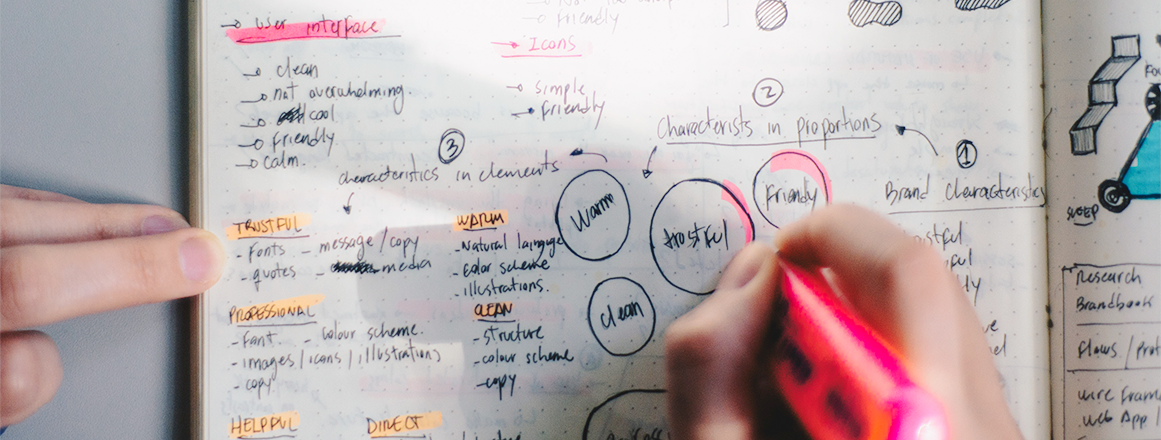 → User interface
→ clean
→ not overwhelming.
→ cool
→ friendly
→ calm.
→ friendly
→ Icons
→ simple
→ friendly
②
Characterists in proportions
①
Brand characteristics
③
characteristics in elements
TRUSTFUL
- Fonts - message/copy
- quotes - media
PROFESSIONAL
- Font. - colour scheme.
- images/icons/illustrations
- copy
HELPFUL
DIRECT
WARM
- Natural language
- color scheme
- illustrations.
CLEAN
- structure
- colour scheme
- copy
Warm
trostful
friendly
clean
SWEEP
Research
Brandbook
Flows /
wire
web App /